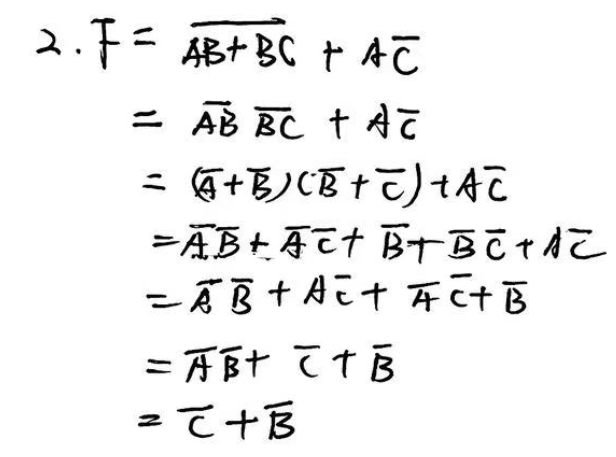 2. F = \overline{AB+BC} + A\overline{C}
= \overline{AB} \overline{BC} + A\overline{C}
= (\overline{A}+\overline{B})(\overline{B}+\overline{C})+A\overline{C}
=\overline{A}\overline{B}+\overline{A}\overline{C}+\overline{B}+\overline{B}\overline{C}+A\overline{C}
=\overline{A}\overline{B}+A\overline{C}+\overline{A}\overline{C}+\overline{B}
=\overline{A}\overline{B}+\overline{C}+\overline{B}
=\overline{C}+\overline{B}